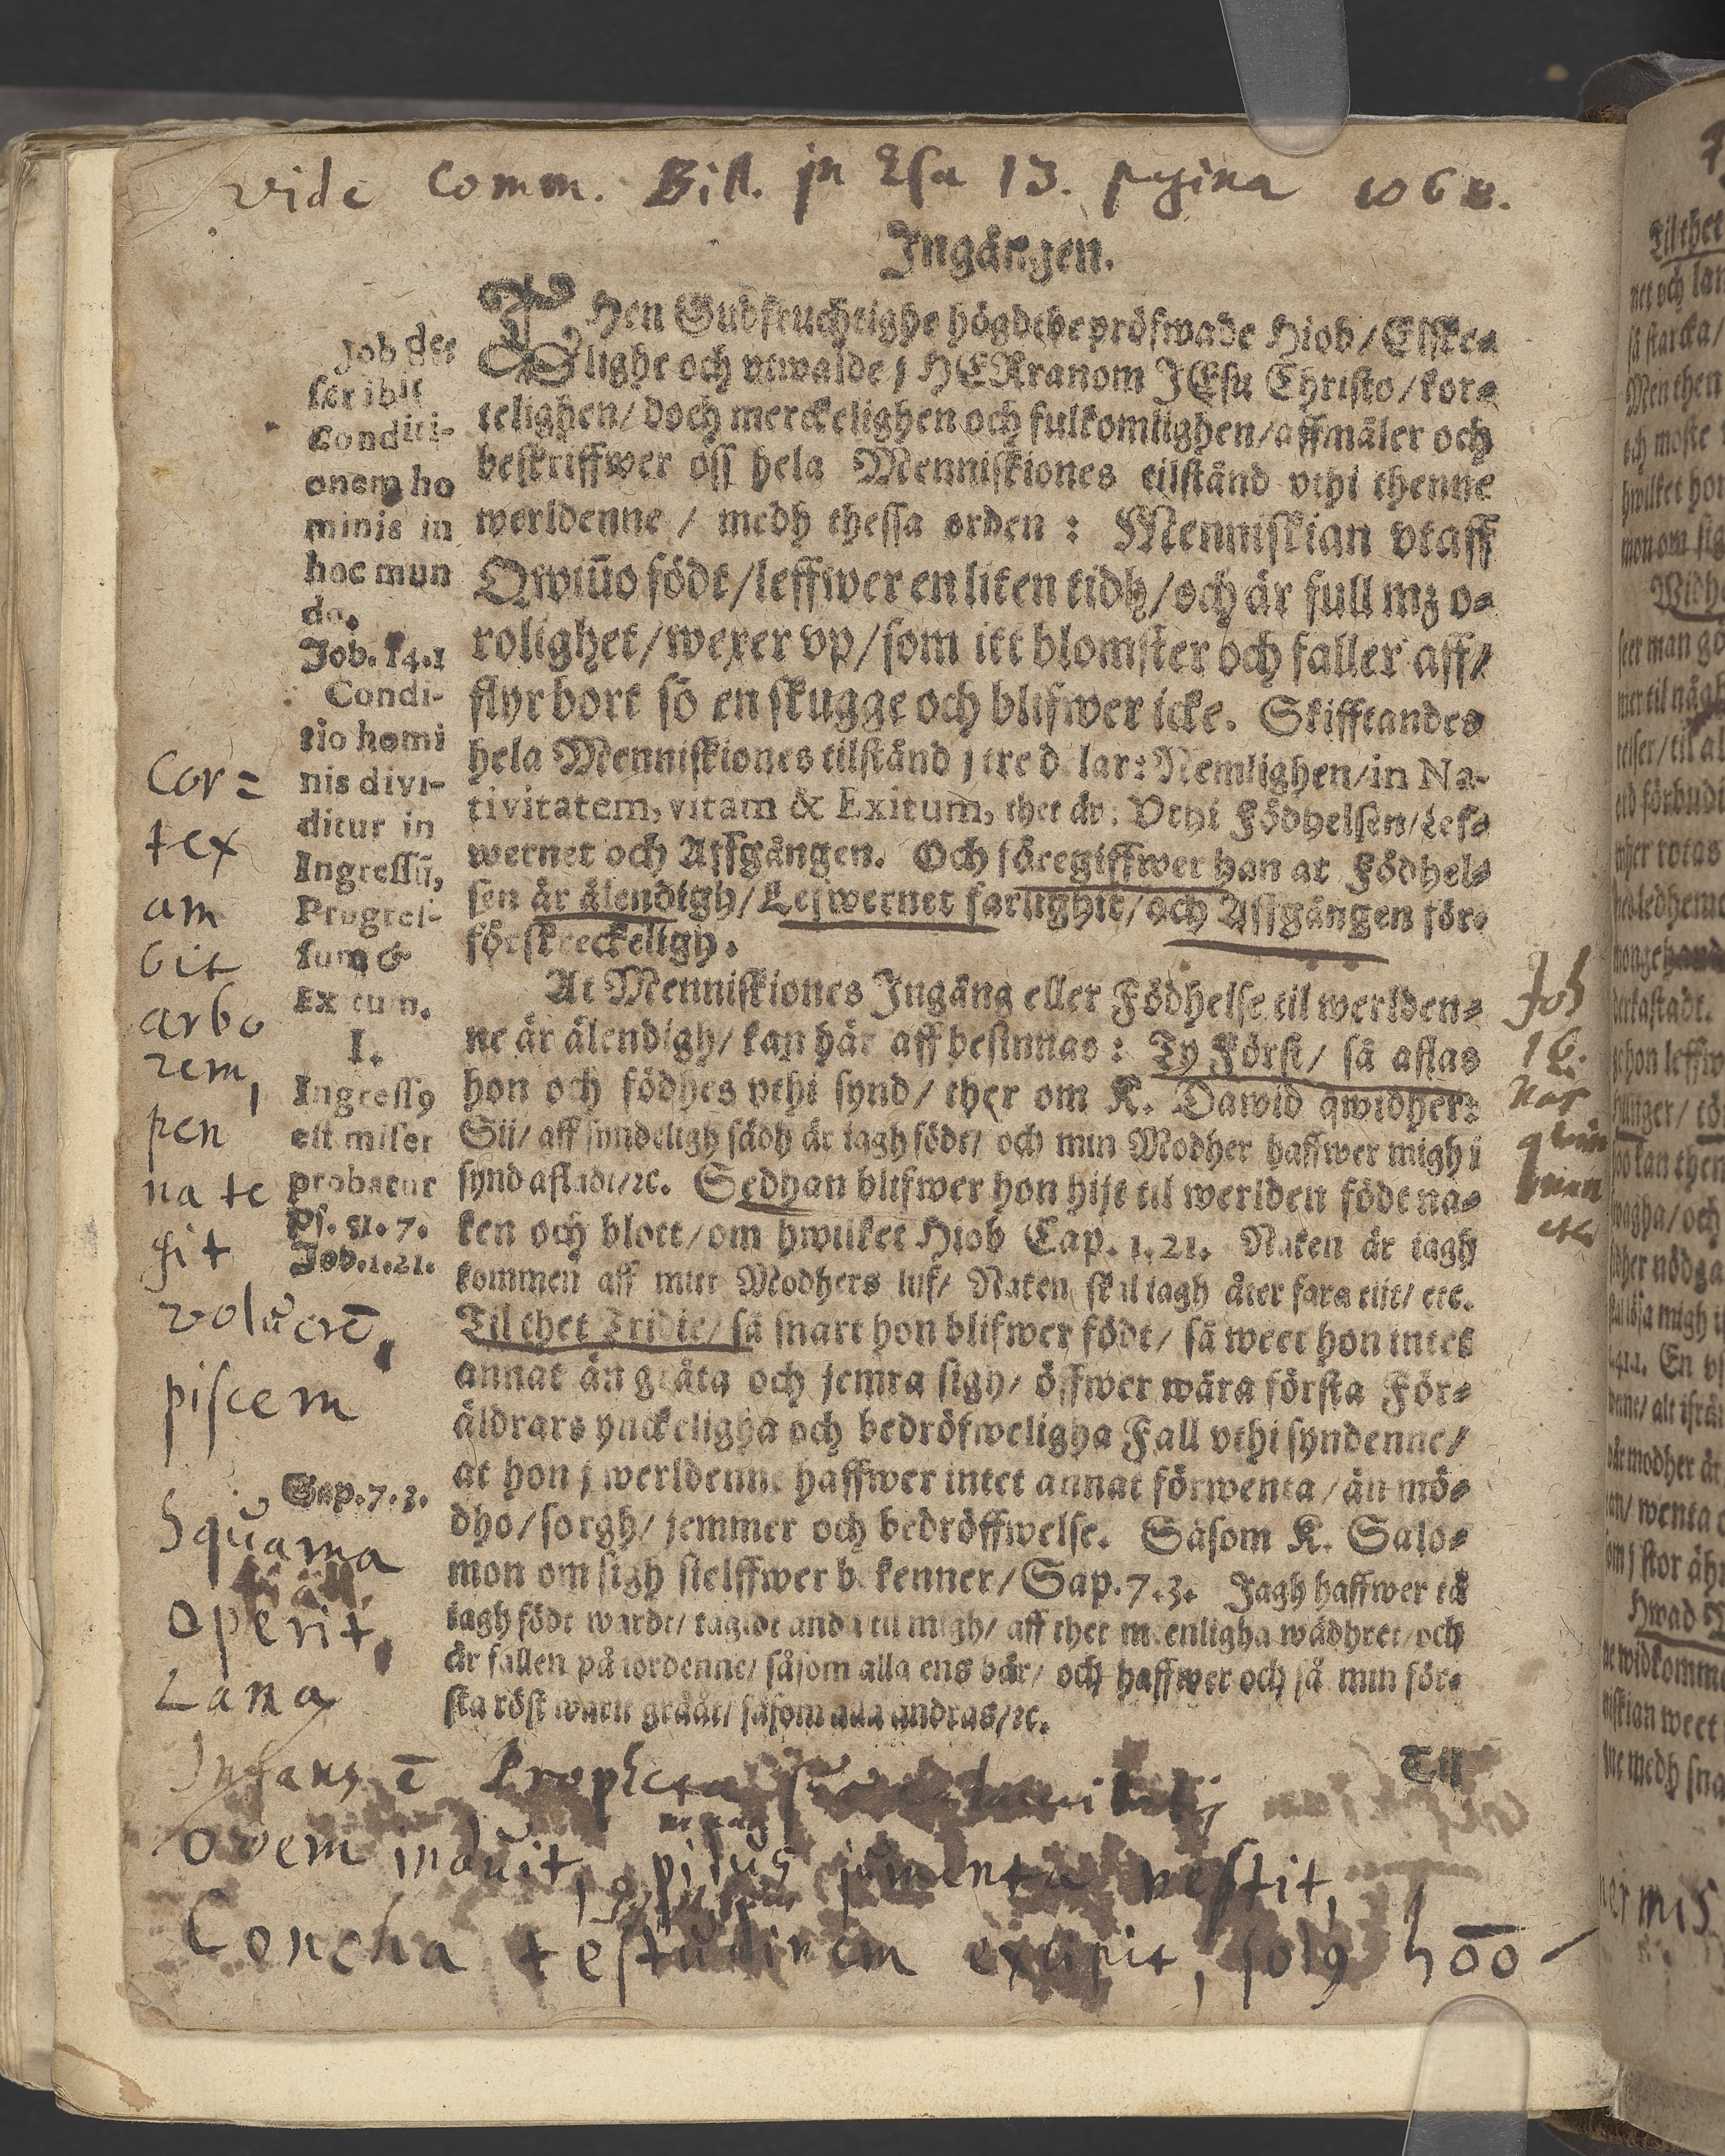 vide Comm. Bill. jn Esa 13. pagina 1068.
Ingången.
THen Gudfruchtighe högdtbepröfwade Hiob/ Elske-
lighe och vtwalde j HERranom JEsu Christo/ kor-
telighen/ doch merckelighen och fulkomlighen/ affmäler och
beskriffwer oss hela Menniskiones tilstånd vthi thenne
werldenne / medh thessa orden: Menniskian vtaff
Qwiũo födt/ leffwer en liten tidh/ och är full mz o-
rolighet/ wexer vp/ som itt blomster och faller aff/
flyr bort sõ en skugge och blifwer icke. Skifftandes
hela Menniskiones tilstånd j tre d lar: Nemlighen/ in Na-
tivitatem, vitam & Exitum, thet är: Vthi Födhelsen/ Lef-
wernet och Affgången. Och föregiffwer han at Födhel-
sen är älendigh/ Lefwernet farlighit/ och Affgången för-
förskreckeligh.
At Menniskiones Ingång eller Födhelse til werlden-
ne är älendigh/ kan här aff besinnas: Ty Först/ så aflas
hon och födhes vthi synd/ ther om K. Dawid qwidher:
Sii/ aff syndeligh sädh är iagh födt/ och min Modher haffwer migh i
synd afladt/ ꝛc. Sedhan blifwer hon hijt til werlden födt na-
ken och blott/ om hwilket Hiob Cap. 1.21. Naken är iagh
kommen aff mitt Modhers liif/ Naken skal iagh åter fara tiit/ etc.
Til thet Tridie/ så snart hon blifwer födt/ så weet hon intet
annat än gråta och jemra sigh/ öffwer wåra första För-
äldrars ynckeligha och bedröfweligha Fall vthi syndenne/
at hon j werldenne haffwer intet annat förwenta/ än mö-
dho/ sorgh/ jemmer och bedröffwelse. Såsom K. Salo-
mon om sigh sielffwer b kenner/ Sap.7.3. Jagh haffwer tå
iagh födt wardt/ tagidt anda til migh/ aff thet menligha wädhret/ och
är fallen på iordenne/ såsom alla ens bär/ och haffwer och så min för-
sta röst warit grååt/ såsom alla andras/ ꝛc.
Til
Job des
scribit
Conditi-
onem ho
minis in
hoc mun
do.
Job. 14.1
Condi-
tio homi
nis divi-
ditur in
Ingressũ,
Progres-
sum &
Exitum.
I.
Ingressꝯ
est miser
probatur
Ps. 51. 7.
Job.1.21.
Sap.7.3.
Cor=
tex
am
bit
arbo
rem,
pen
na te
git
volucrē,
piscem
Squama
operit,
Lana
Joh
16.
etc.
Infans ē Propheta
ovem induit, pilus jumenta vestit,
Concha testudinem excipit, solꝯ hōō